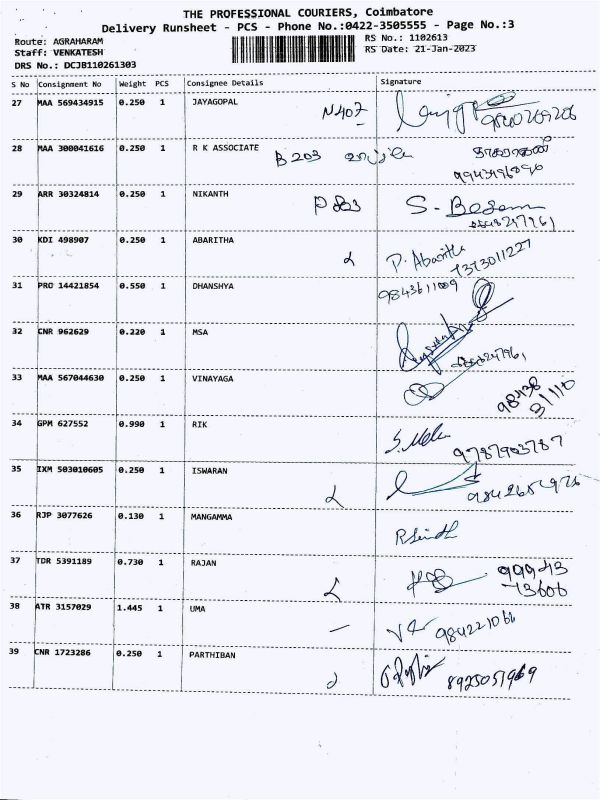 THE PROFESSIONAL COURIERS, Coimbatore
Delivery Runsheet - PCS - Phone No.:0422-3505555 - Page No.:3
Route: AGRAHARAM
RS No.: 1102613
Staff: VENKATESH
RS Date: 21-Jan-2023
DRS No.: DCJB110261303
S No Consignment No Weight PCS Consignee Details Signature
27 MAA 569434915 0.250 1 JAYAGOPAL N407
28 MAA 300041616 0.250 1 R K ASSOCIATE B 203
29 ARR 30324814 0.250 1 NIKANTH S-
30 KDI 498907 0.250 1 ABARITHA P. Abaritha
7373011227
31 PRO 14421854 0.550 1 DHANSHYA 9843611009
32 CNR 962629 0.220 1 MSA
33 MAA 567044630 0.250 1 VINAYAGA 98438
31110
34 GPM 627552 0.990 1 RIK 9787903787
35 IXM 503010605 0.250 1 ISWARAN
36 RJP 3077626 0.130 1 MANGAMMA
37 TDR 5391189 0.730 1 RAJAN 99943
73606
38 ATR 3157029 1.445 1 UMA
39 CNR 1723286 0.250 1 PARTHIBAN 8925051969